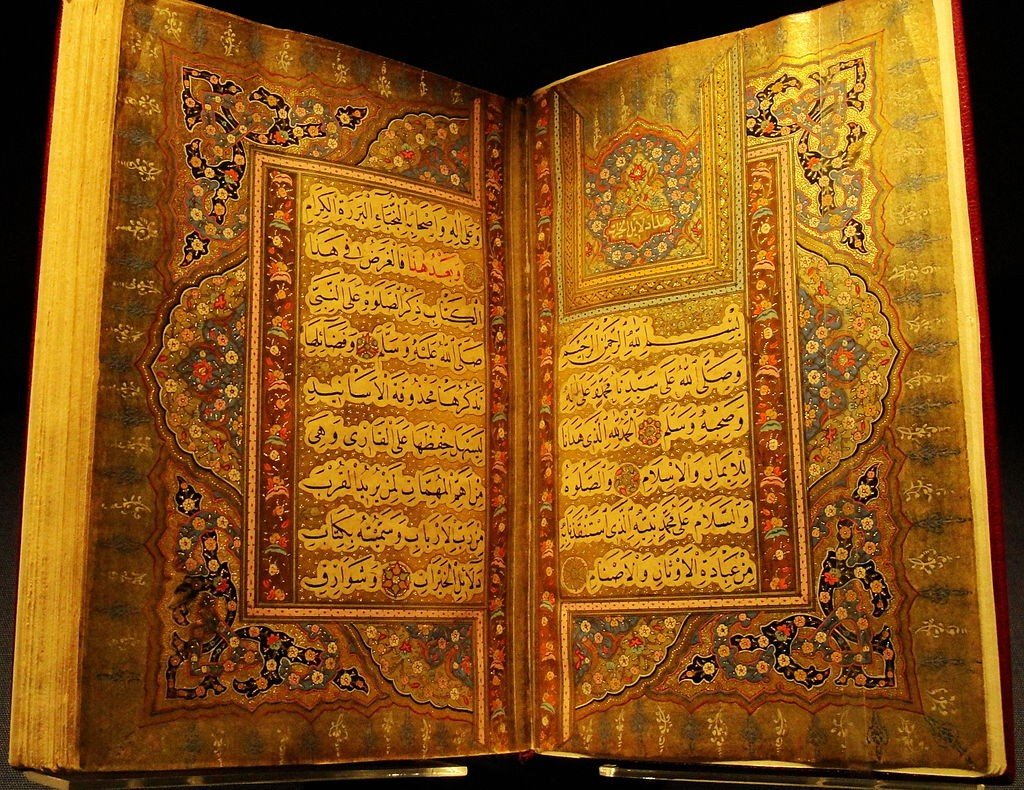 هذا دلائل الخيرات
بسم الله الرحمن الرحيم
وصلى الله على سيدنا محمد وعلى اله
وصحبه وسلم الحمد لله الذى هدانا
للايمان والاسلام والصلوة
والسلام على محمد نبيه الذى استنقذنا به
من عبادة الاوثان والاصنام
وعلى اله واصحابه النجباء البررة الكرام
وبعد هذا فالغرض فى هذا
الكتاب ذكر الصلوة على النبى
صلى الله عليه وسلم وفضائلها
نذكرها محذوفة الاسانيد
ليسهل حفظها على القارئ وهى
من اهم المهمات لمن يريد القرب
من رب الارباب وسميته بكتاب
دلائل الخيرات وشوارق